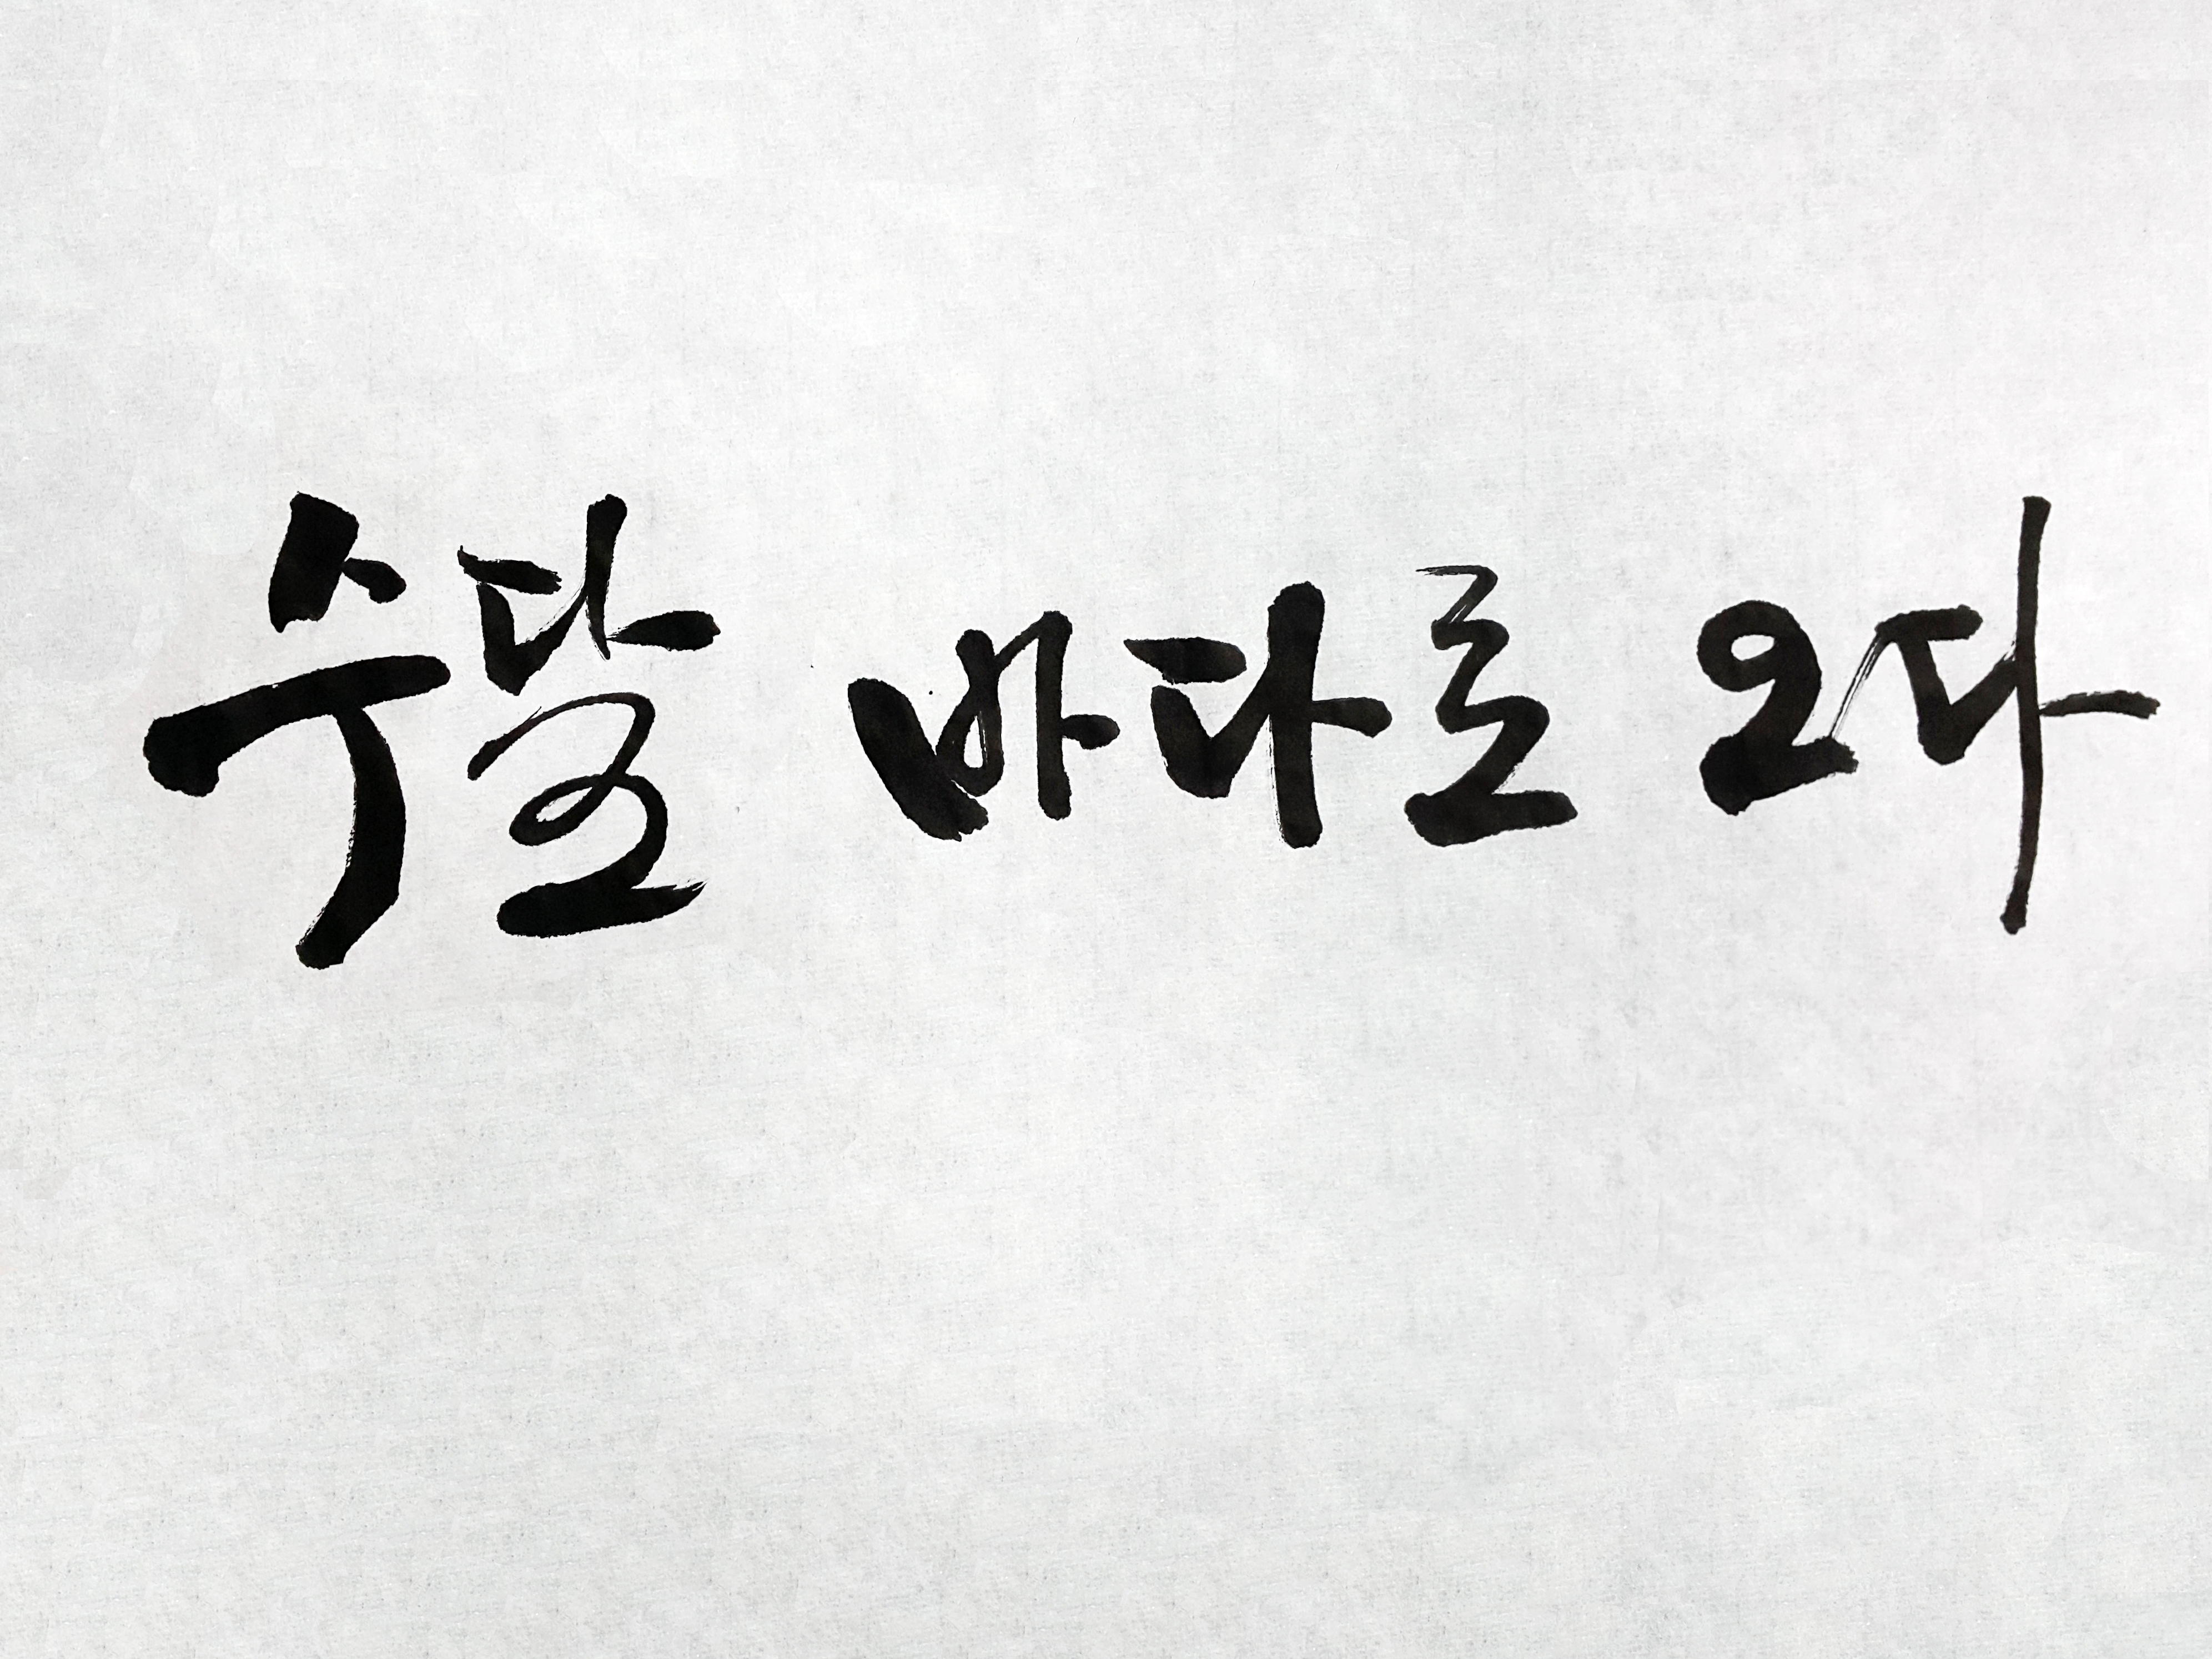 수달 바다로 오다